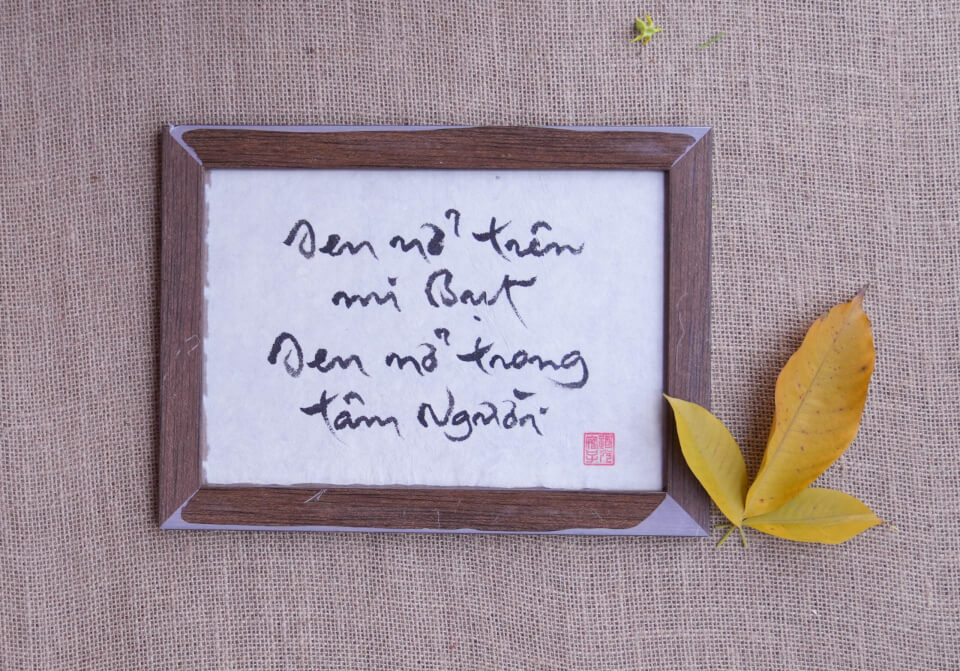 Sen nở trên
mi Bụt
Sen nở trong
tâm Người